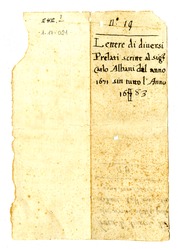 242. 2
1-11-021
nº 19
Lettere di diversi
Prelati scritte al sigr
Carlo Albani dal anno
1671 sin tutto l'Anno
1683